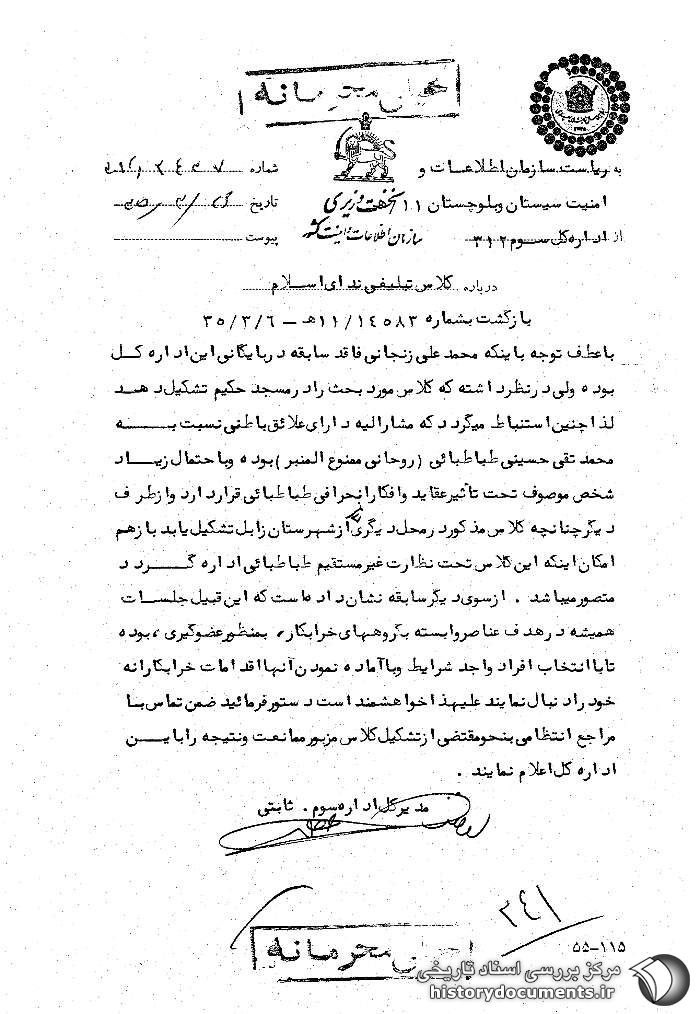 خیلی محرمانه
به ریاست سازمان اطلاعات و
امنیت سیستان وبلوچستان ۱۱
از اداره کل سوم ۳۱۲
نخست وزیری
سازمان اطلاعات و امنیت کشور
شماره
تاریخ
پیوست
درباره کلاس تبلیغی ندای اسلام
بازگشت بشماره ۱۱/۱۴۵۸۳هـ - ۳۵/۳/۶
باعطف توجه باینکه محمد علی زنجانی فاقد سابقه دربایگانی این اداره کل
بوده ولی درنظرداشته که کلاس مورد بحث رادرمسجد حکیم تشکیل دهد
لذاچنین استنباط میگردد که مشارالیه دارای علائق باطنی نسبت به
محمد تقی حسینی طباطبائی (روحانی ممنوع المنبر) بوده وباحتمال زیاد
شخص موصوف تحت تأثیرعقاید وافکارانحرافی طباطبائی قراردارد وازطرف
دیگرچنانچه کلاس مذکوردرمحل دیگری ازشهرستان زابل تشکیل یابد بازهم
امکان اینکه این کلاس تحت نظارت غیرمستقیم طباطبائی اداره گردد
متصورمیباشد . ازسوی دیگرسابقه نشان داده است که این قبیل جلسات
همیشه درهدف عناصروابسته بگروههای خرابکار، بمنظورعضوگیری ، بوده
تاباانتخاب افراد واجد شرایط وباآماده نمودن آنهااقدامات خرابکارانه
خودرادنبال نمایند علیهذاخواهشمند است دستورفرمائید ضمن تماس با
مراجع انتظامی بنحومقتضی ازتشکیل کلاس مزبورممانعت ونتیجه رابایـن
اداره کل اعلام نمایند .
مدیرکل اداره سوم . ثابتی
۳۴۱
۵۵-۱۱۵
خیلی محرمانه
مرکز بررسی اسناد تاریخی
historydocuments.ir